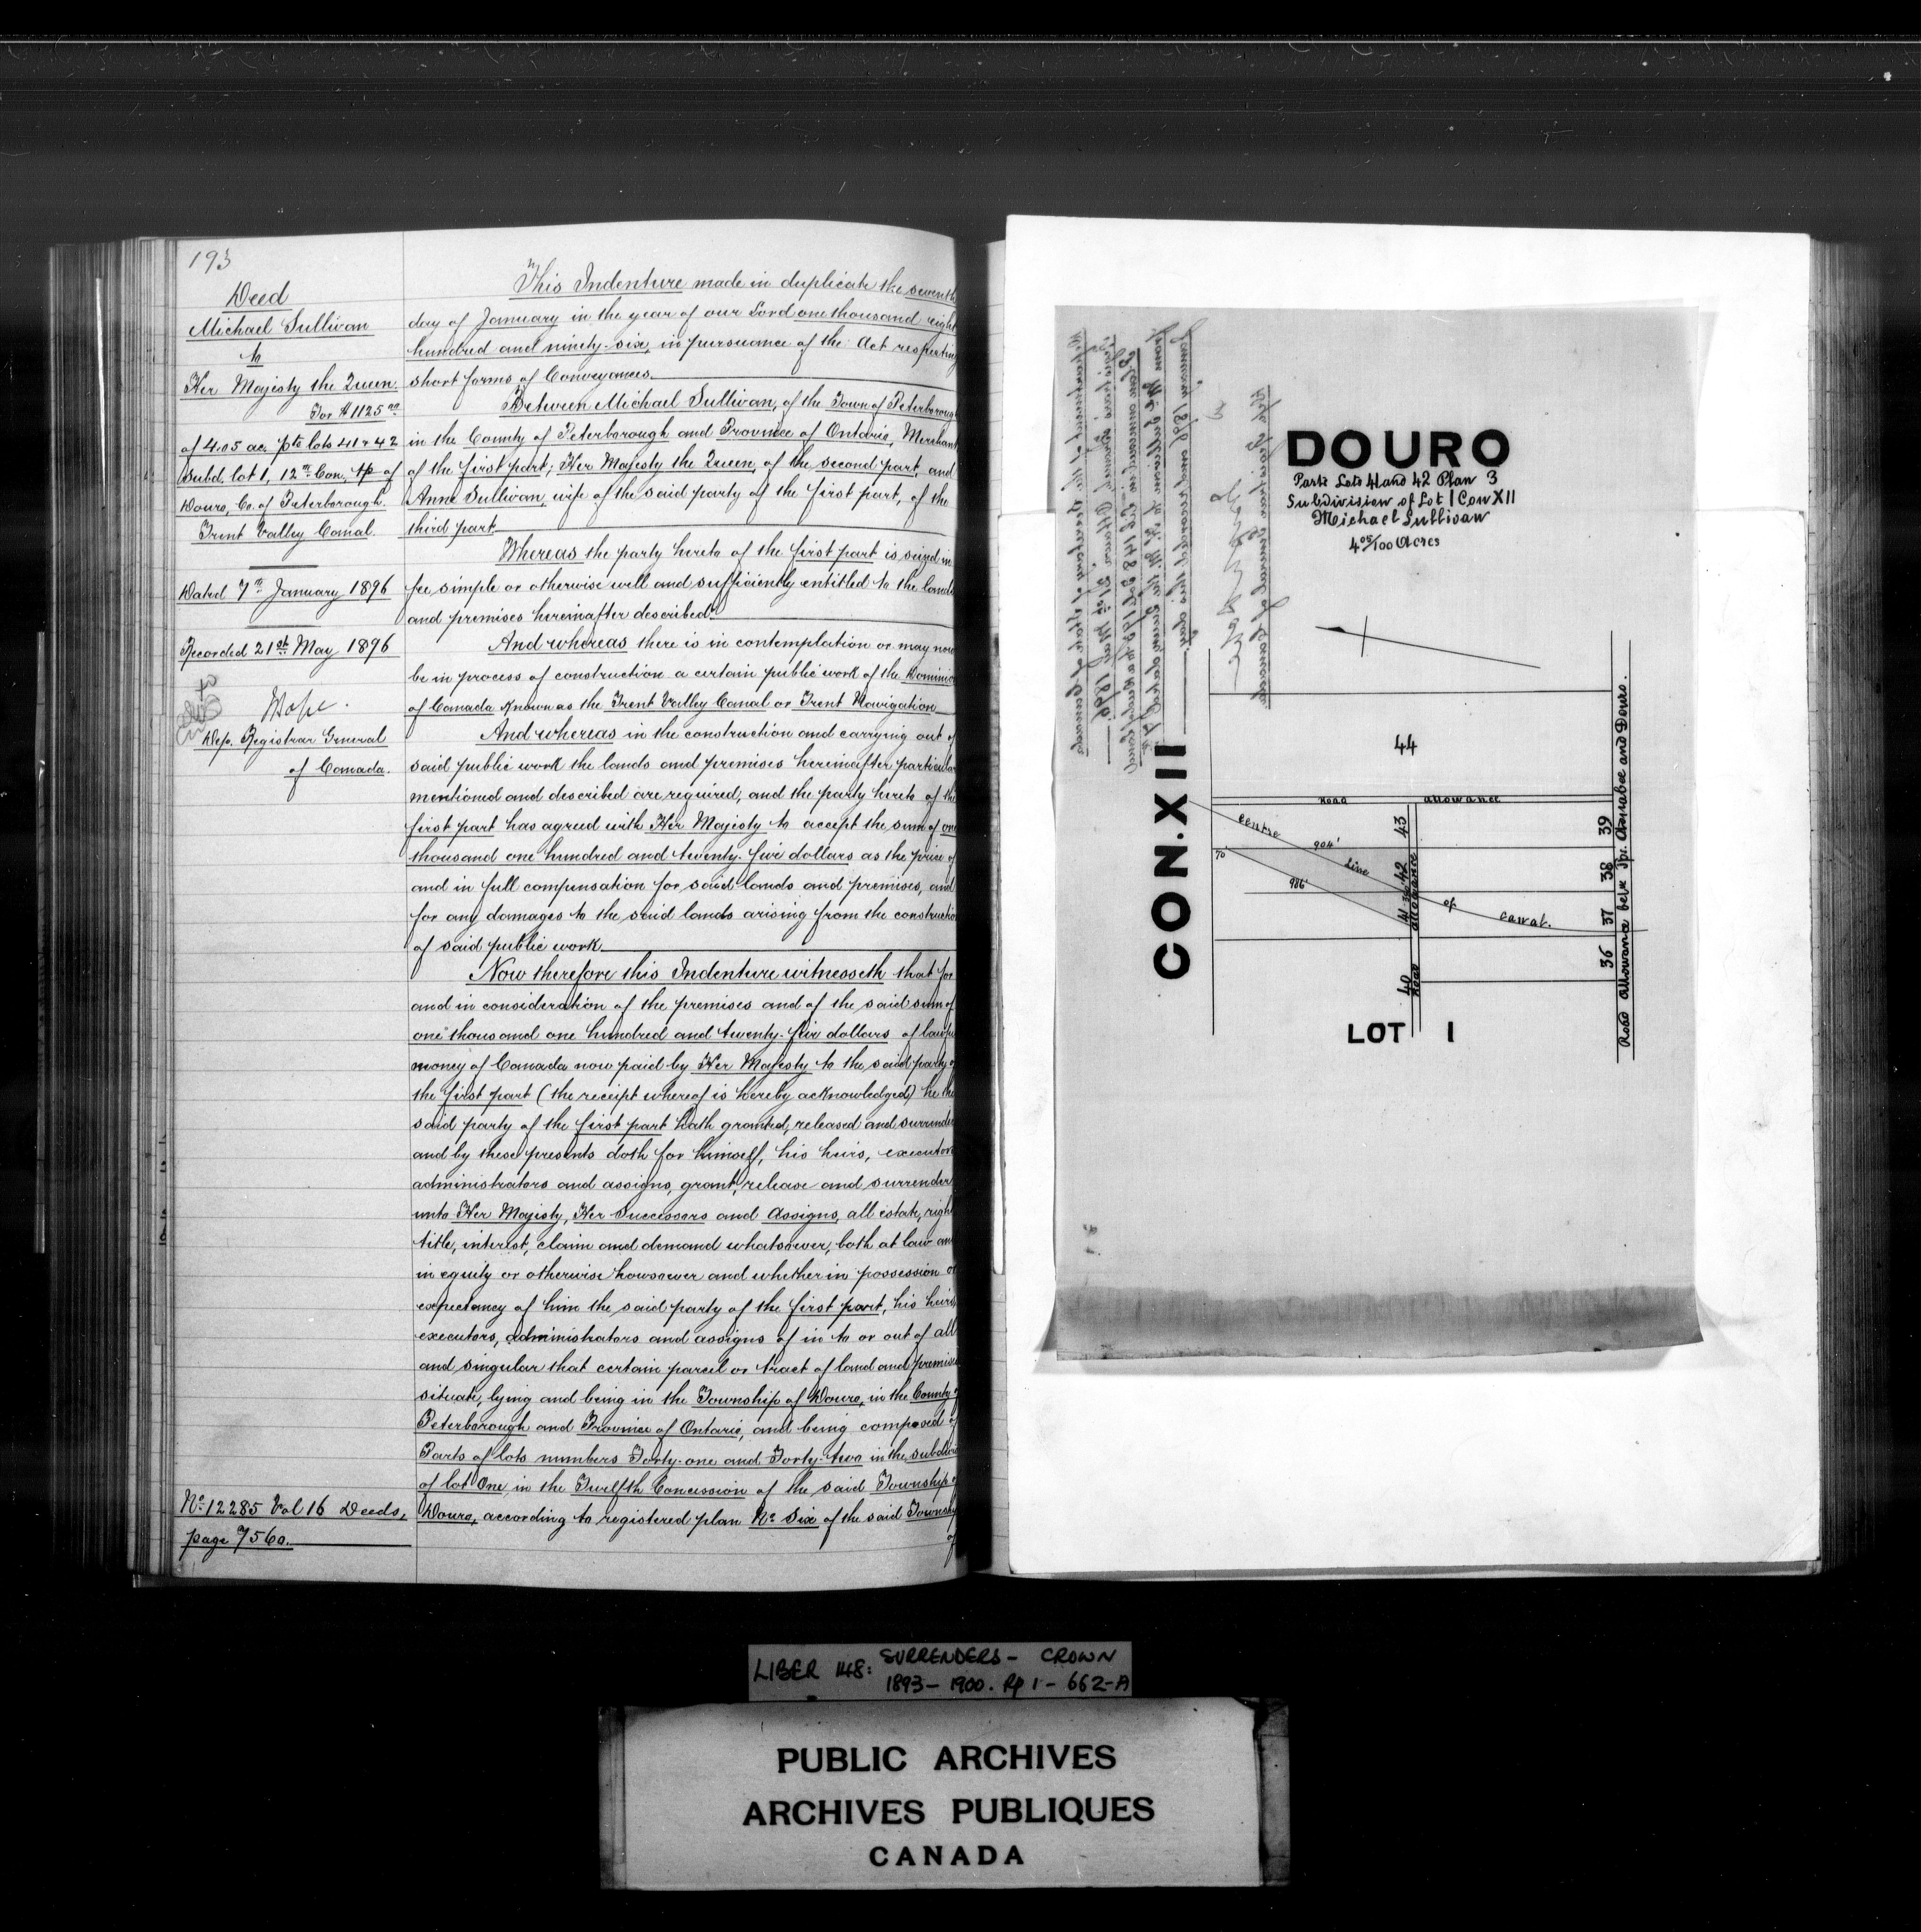 193
Deed
Michael Sullivan
to
Her Majesty the Queen.
For $1125 00
of 4.05 ac. pts lots 41 & 42
Subd. lot 1, 12th Con. tp of
Douro, Co. of Peterborough.
Trent Valley Canal.
Dated 7th January 1896
Recorded 21st May 1896
Dep. Registrar General
of Canada.
No 12285 Vol 16 Deeds,
page 7560.
This Indenture made in duplicate the seventh
day of January in the year of our Lord one thousand eight
hundred and ninety-six, in pursuance of the Act respecting
short forms of Conveyances.
Between Michael Sullivan, of the Town of Peterborough
in the County of Peterborough and Province of Ontario, Merchant
of the first part; Her Majesty the Queen, of the second part, and
Anne Sullivan, wife of the said party of the first part, of the
third part.
Whereas the party hereto of the first part is seized in
fee simple or otherwise well and sufficiently entitled to the lands
and premises hereinafter described.
And whereas there is in contemplation or may now
be in process of construction a certain public work of the Dominion
of Canada known as the Trent Valley Canal or Trent Navigation
And whereas in the construction and carrying out of
said public work the lands and premises hereinafter particular
mentioned and described are required, and the party hereto of the
first part has agreed with Her Majesty to accept the sum of one
thousand one hundred and twenty-five dollars as the price of
and in full compensation for said lands and premises, and
for any damages to the said lands arising from the construction
of said public work.
Now therefore this Indenture witnesseth that for
and in consideration of the premises and of the said sum of
one thousand one hundred and twenty-five dollars of lawful
money of Canada now paid by Her Majesty to the said party of
the first part (the receipt whereof is hereby acknowledged) he the
said party of the first part hath granted, released and surrender
and by these presents doth for himself, his heirs, executors
administrators and assigns, grant, release and surrender
unto Her Majesty, Her Successors and Assigns, all estate, right
title, interest, claim and demand whatsoever, both at law and
in equity or otherwise howsoever and whether in possession or
expectancy of him the said party of the first part, his heirs
executors, administrators and assigns of in to or out of all
and singular that certain parcel or tract of land and premises
situate, lying and being in the Township of Douro, in the County of
Peterborough and Province of Ontario, and being composed of
Parts of lots numbers Forty-one and Forty-two in the subdivi
of lot One, in the Twelfth Concession of the said Township of
Douro, according to registered plan No Six of the said Township
of
DOURO
Parts Lots 41 and 42 Plan 3
Subdivision of Lot 1 Con XII
Michael Sullivan
4 05/100 Acres
CON. XII
44
Road allowance
Centre Line of Canal.
904'
70'
986'
43
42
41
40
Road allowance
39
38
37
36
Road allowance betn Tps. Otonabee and Douro.
LOT 1
LIBER 148: SURRENDERS - CROWN
1893-1900. Rp 1-662-A
PUBLIC ARCHIVES
ARCHIVES PUBLIQUES
CANADA